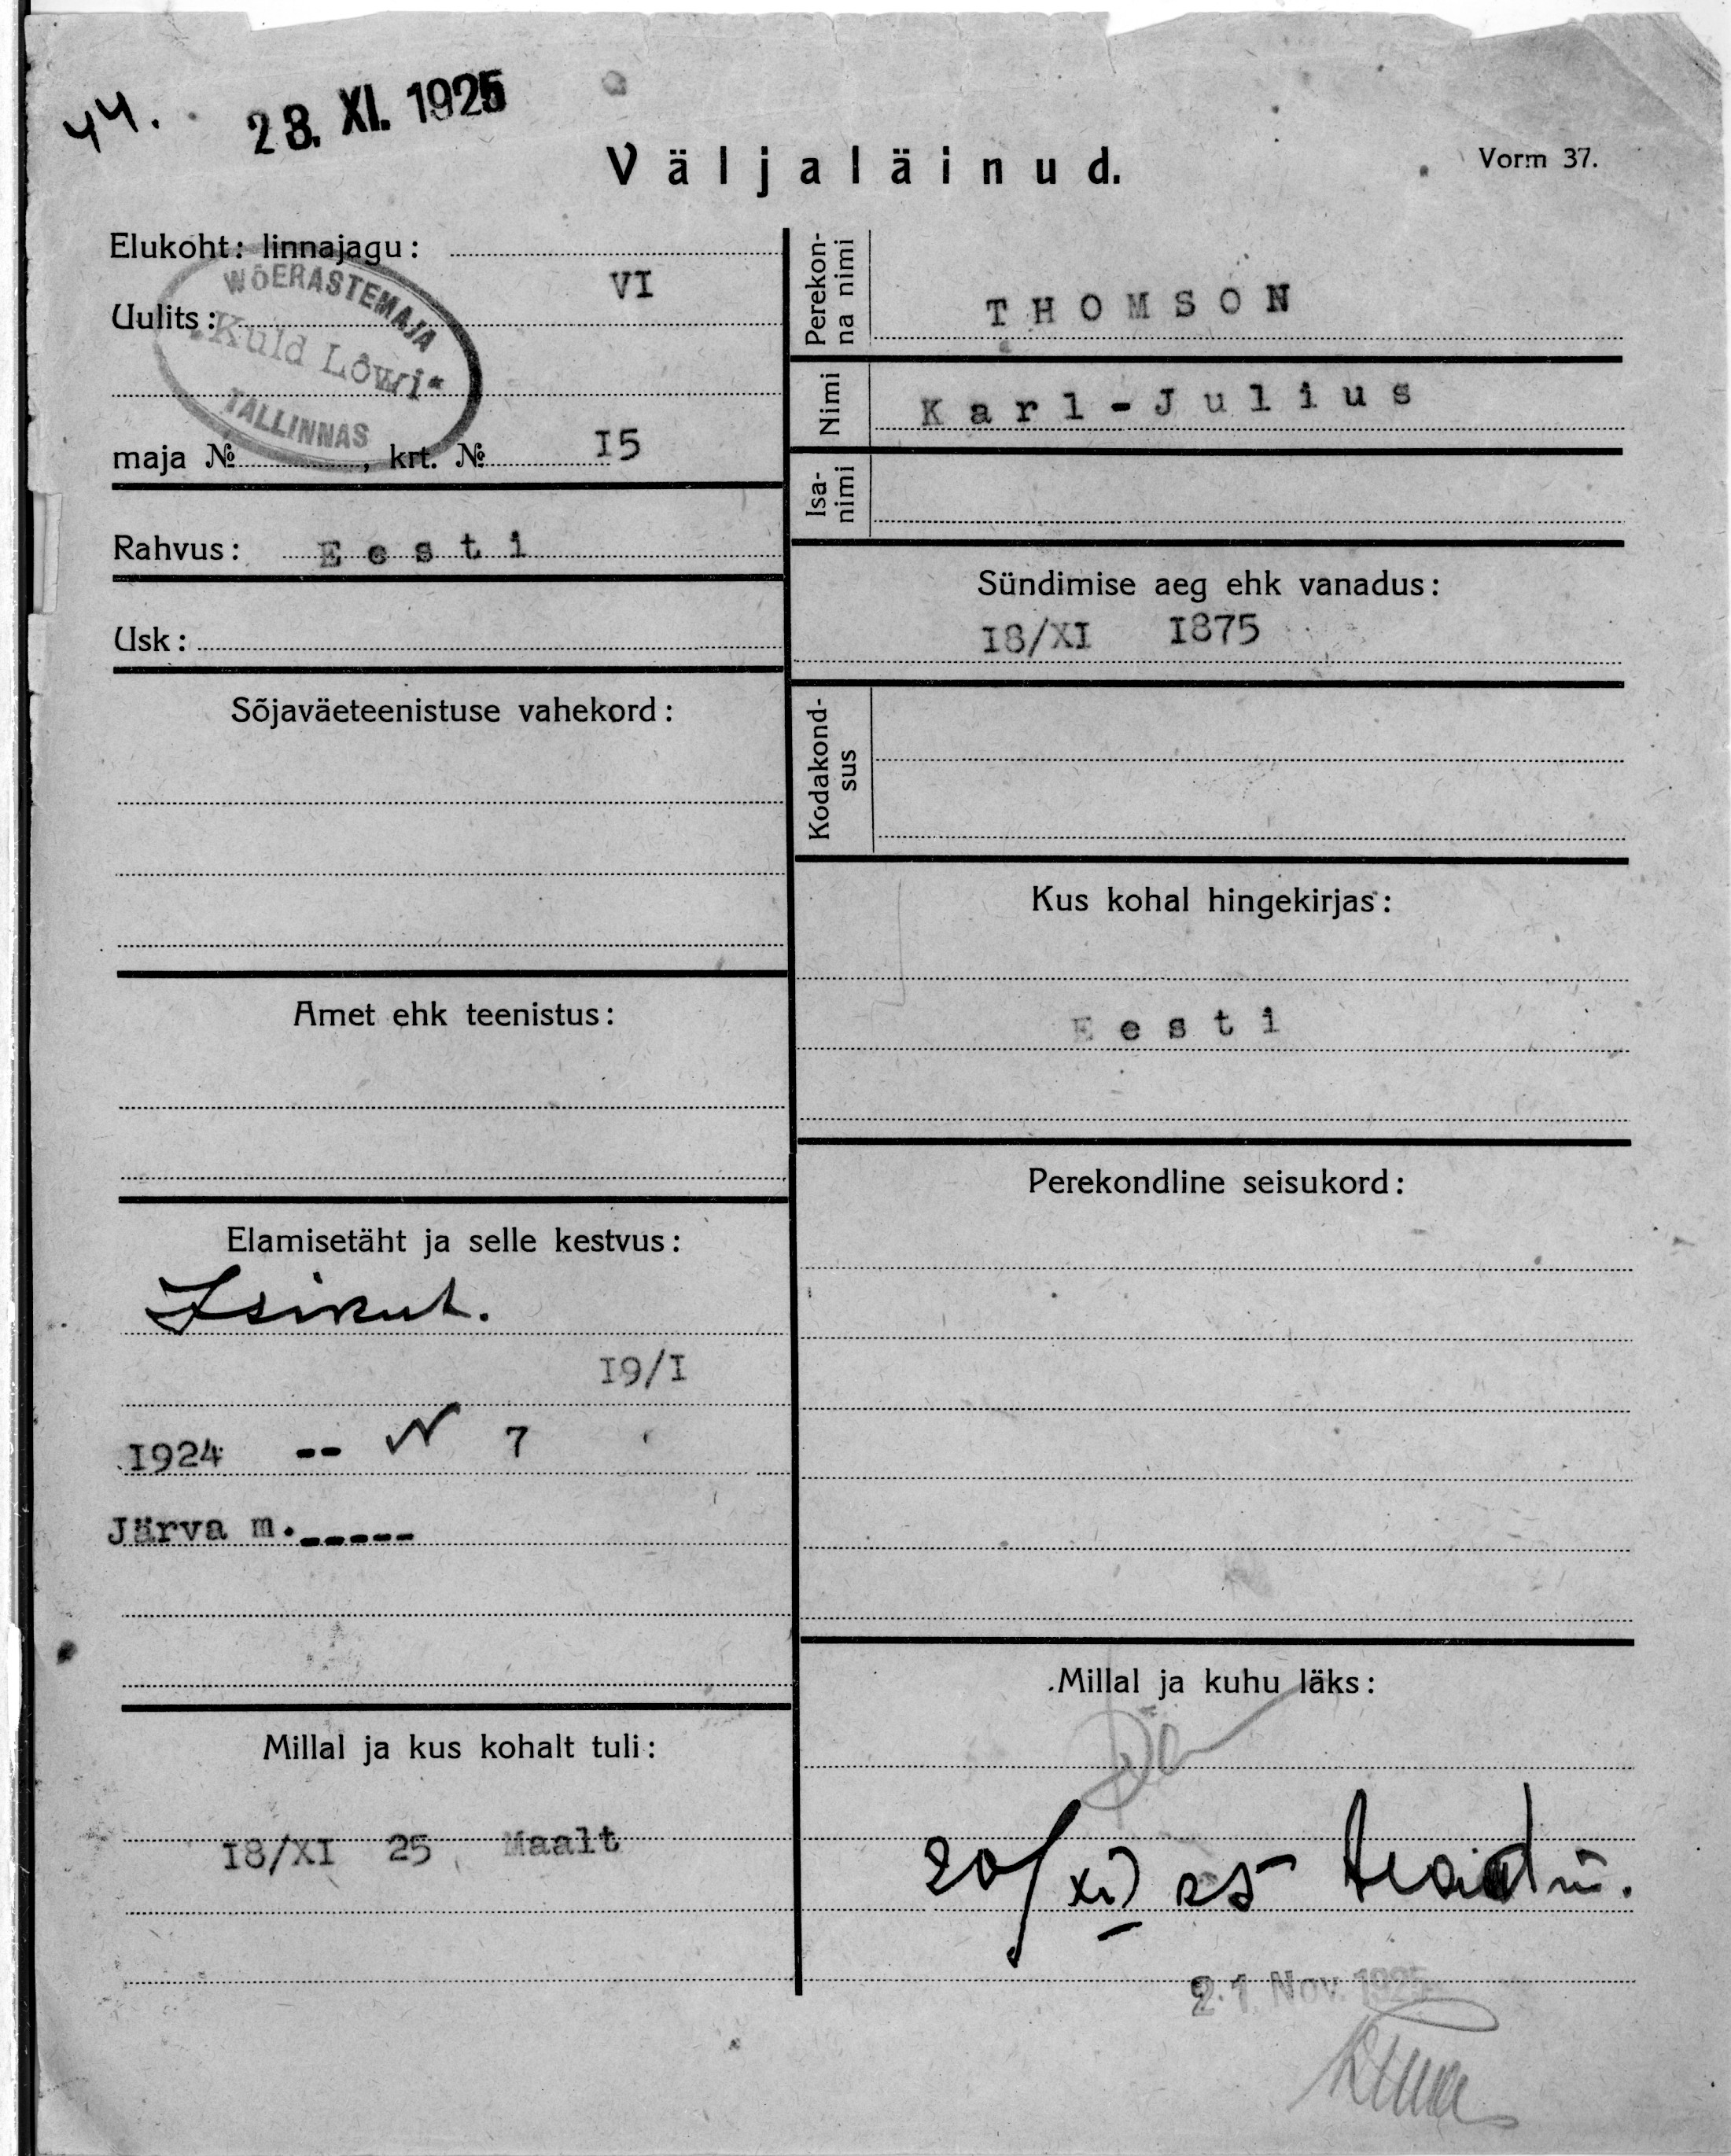 44.
28. XI. 1925
Väljaläinud.
Vorm 37.
Elukoht: linnajagu:
VI
Uulits:
WÕERASTEMAJA
„Kuld Lõwi“
TALLINNAS
maja № , krt. № I5
Rahvus: Eesti
Usk:
Sõjaväeteenistuse vahekord:
Amet ehk teenistus:
Elamisetäht ja selle kestvus:
Isikut.
I9/I
I924 -- N 7
Järva m.-----
Millal ja kus kohalt tuli:
I8/XI 25 Maalt
Perekon-
na nimi
THOMSON
Nimi
Karl-Julius
Isa-
nimi
Sündimise aeg ehk vanadus:
I8/XI I875
Kodakond-
sus
Kus kohal hingekirjas:
Eesti
Perekondline seisukord:
Millal ja kuhu läks:
20/XI 25
21. Nov. 1925